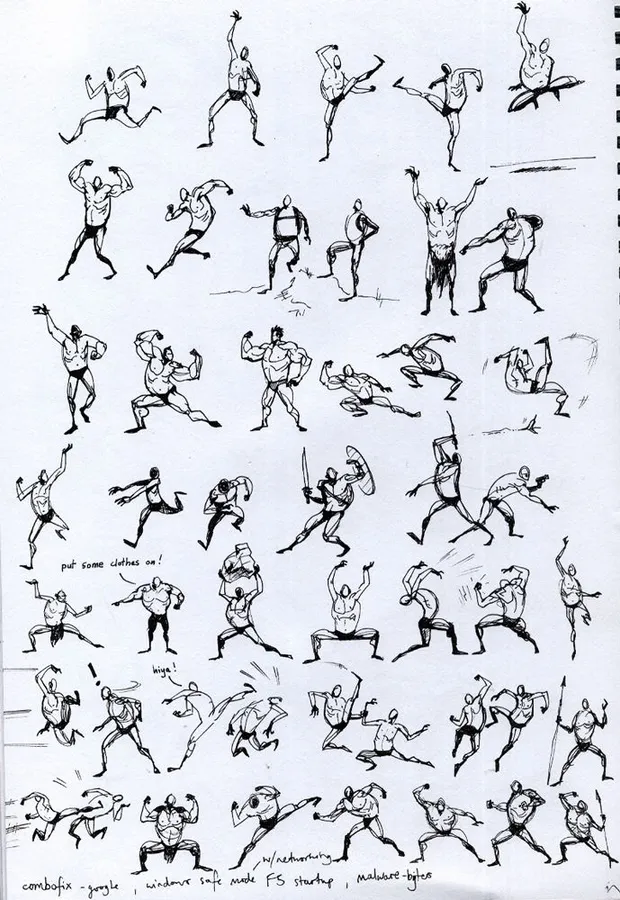 put some clothes on!
!
hiya!
w/networking
combofix - google , windows safe mode F5 startup , malware-bytes